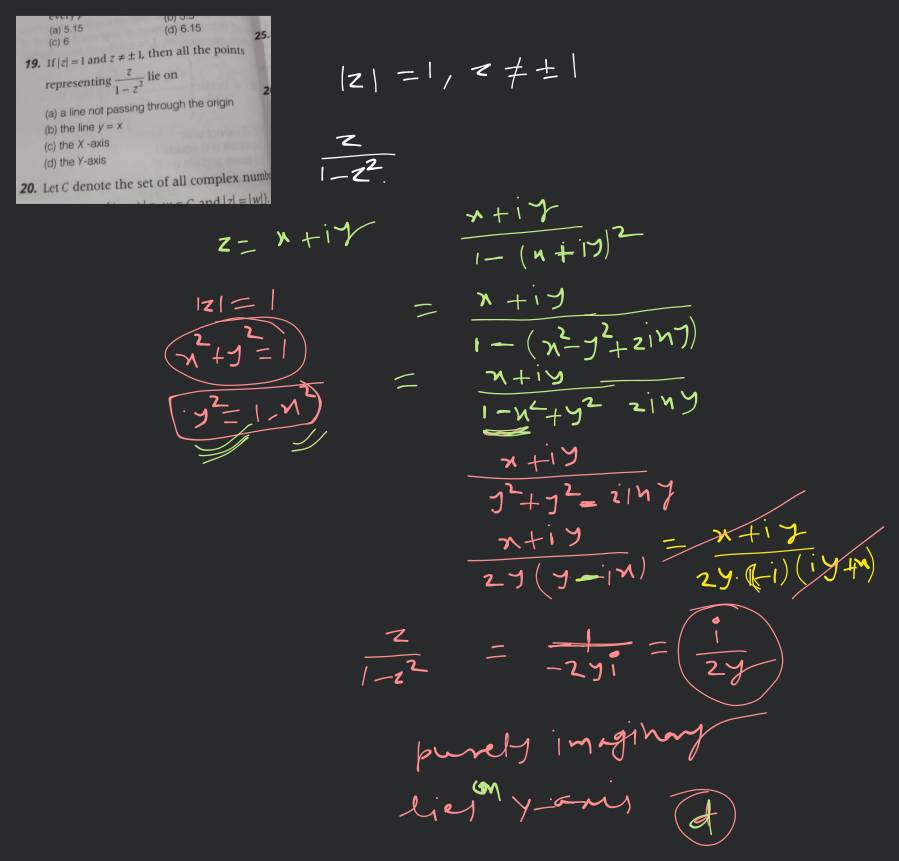 (a) 5.15
(c) 6
(d) 6.15
25.
19. If |z| = 1 and z ≠ ± 1, then all the points
representing z/(1 − z²) lie on
(a) a line not passing through the origin
(b) the line y = x
(c) the X-axis
(d) the Y-axis
20. Let C denote the set of all complex numbe
|z| = 1, z ≠ ± 1
z/(1 − z²).
z = x + iy
(x + iy)/(1 − (x + iy)²)
|z| = 1
x² + y² = 1
y² = 1 − x²
= (x + iy)/(1 − (x² − y² + 2ixy))
= (x + iy)/(1 − x² + y² 2ixy)
(x + iy)/(y² + y² − 2ixy)
(x + iy)/(2y(y − ix)) = (x + iy)/(2y·(−i)(iy + x))
z/(1 − z²) = 1/(−2yi) = i/(2y)
purely imaginary
lies on y-axis d